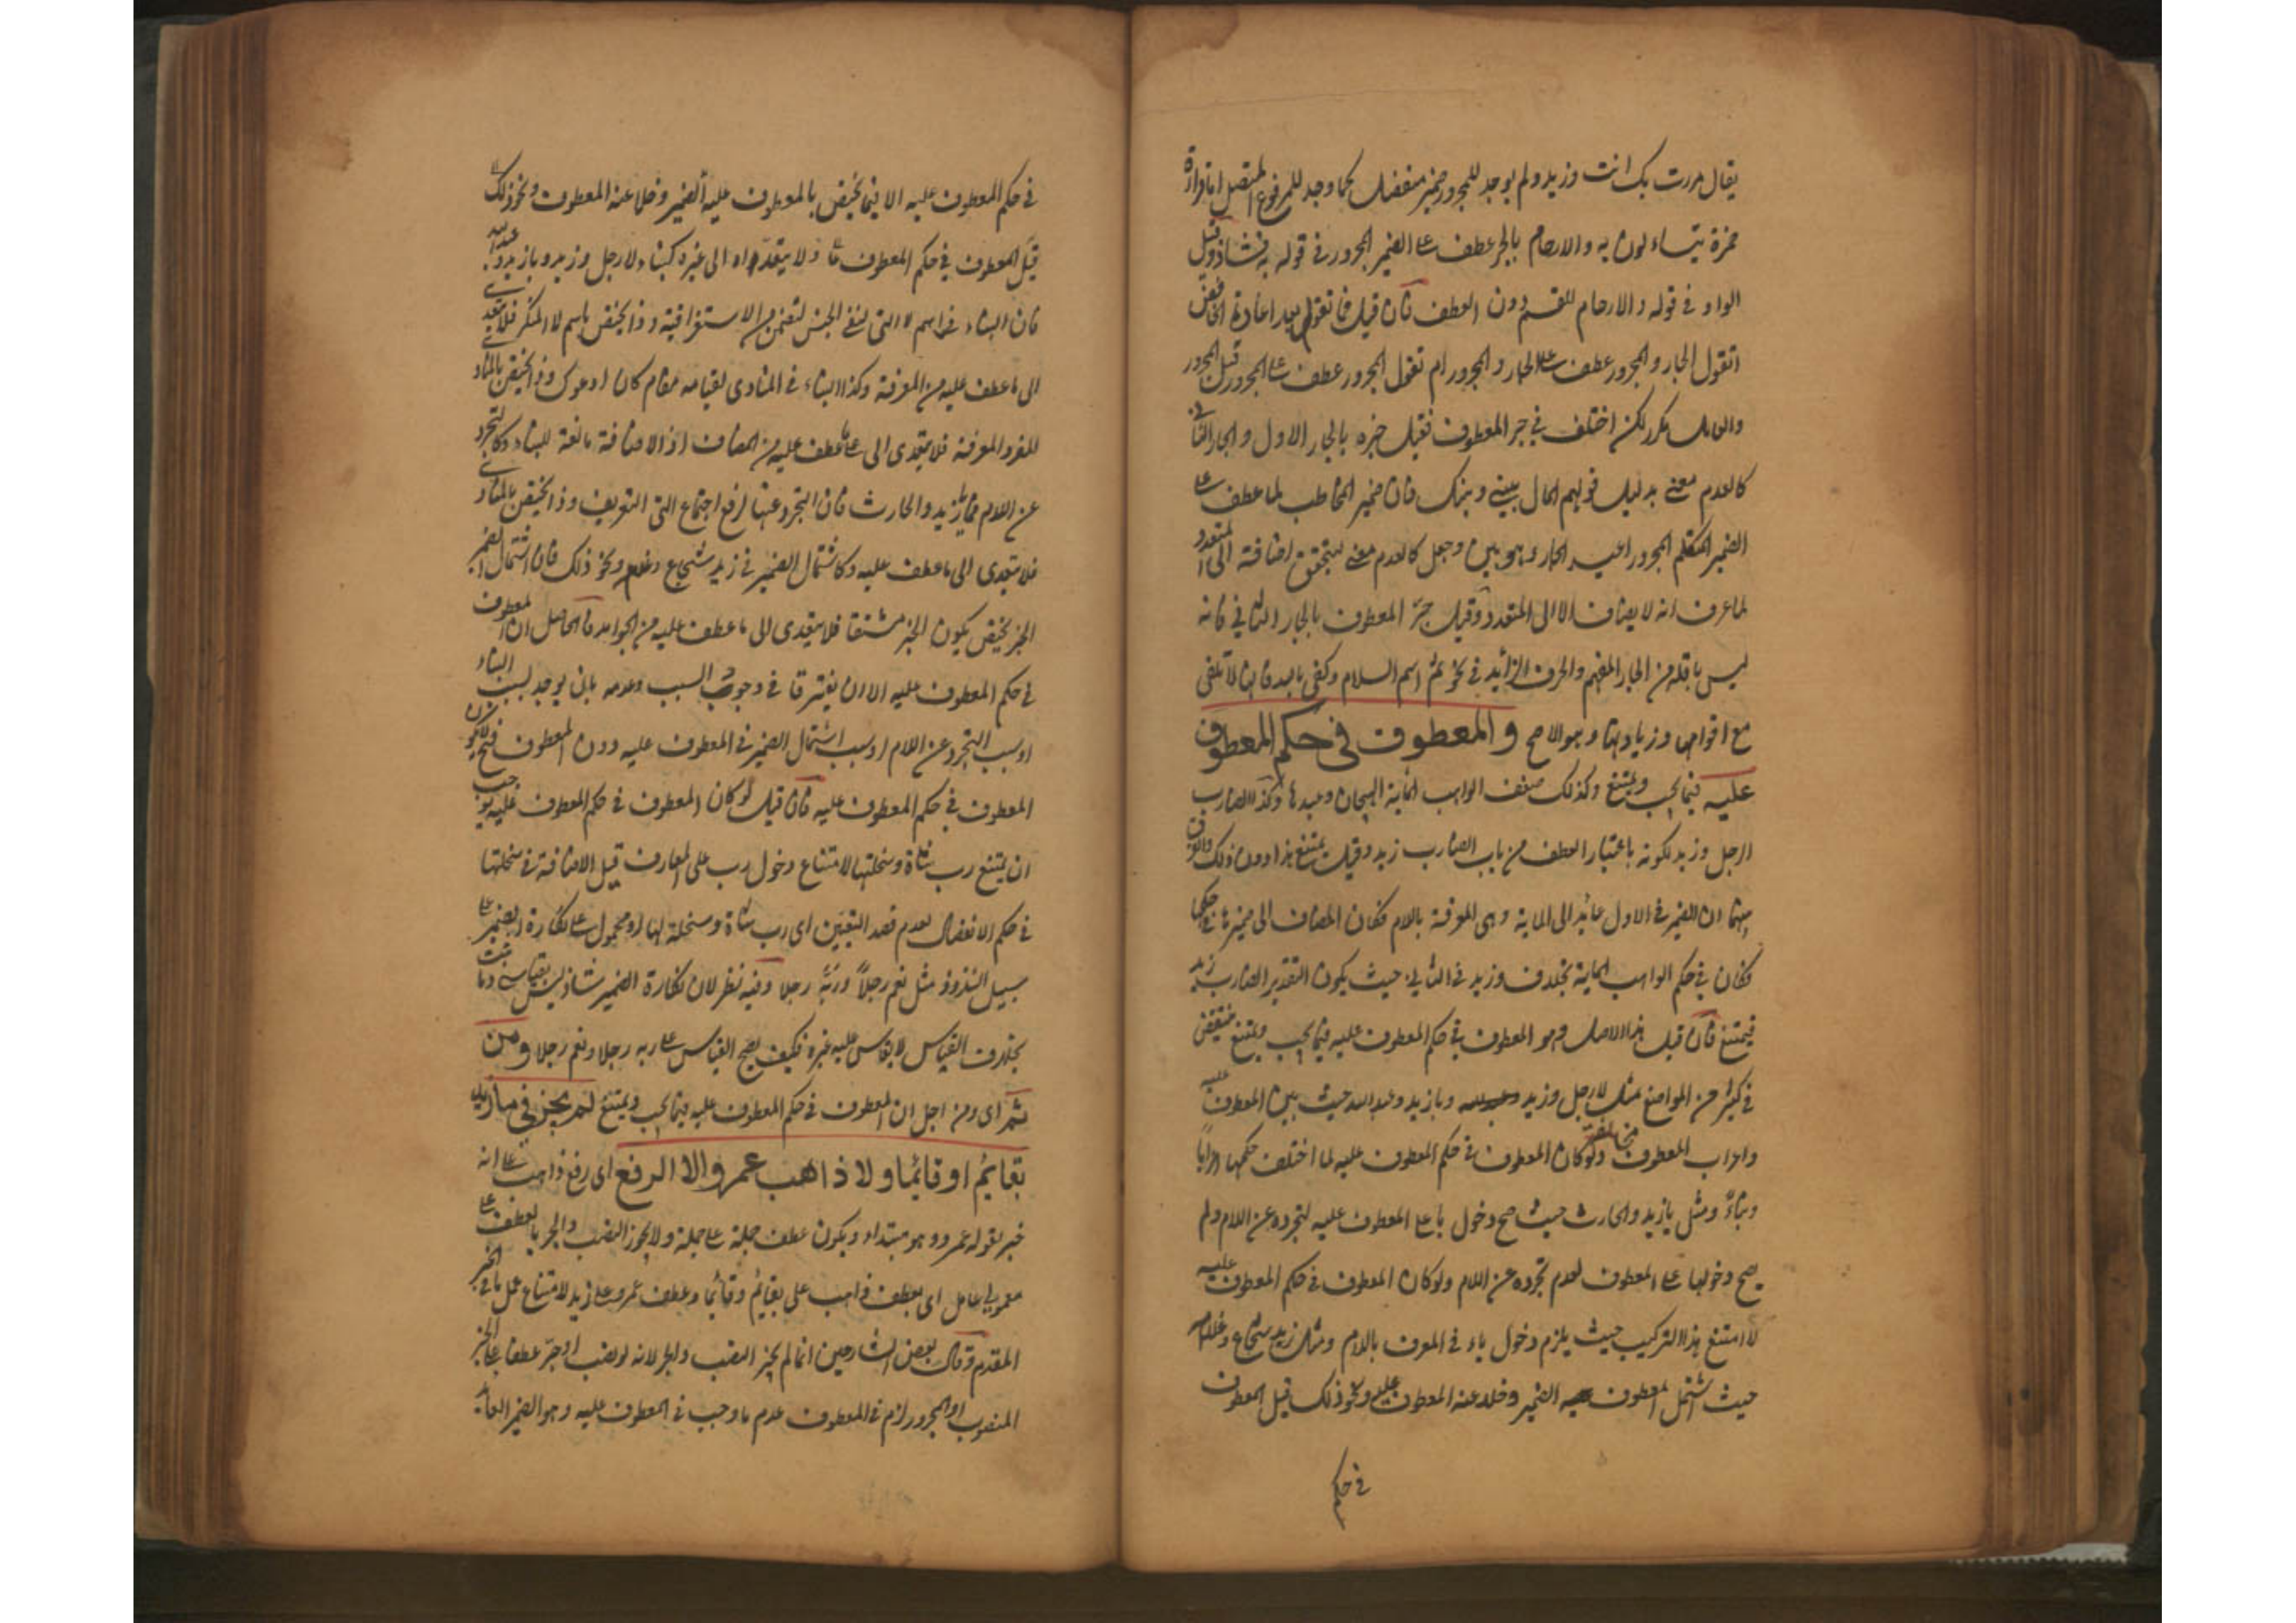 يقال مررت بك انت وزيد ولم يوجد للمجرور ضمير منفصل كما وجد للمرفوع المتصل اما قراءة
حمزة يتساءلون به والارحام بالجر عطف على الضمير المجرور في قوله به فشاذ وقيل
الواو في قوله والارحام للقسم دون العطف فان قيل فما تقول بعد اعادة الخافض
اتقول الجار والمجرور عطف على الجار والمجرور ام تقول المجرور عطف على المجرور قيل المجرور
والعامل مكرر لكن اختلف في جر المعطوف فقيل جره بالجار الاول والجار الثاني
كالعدم معنى بدليل قولهم المال بيني وبينك فان ضمير المخاطب لما عطف على
الضمير المتكلم المجرور اعيد الجار وهو بين وجعل كالعدم معنى ليتحقق اضافته الى المتعدد
لما عرف انه لا يضاف الا الى المتعدد وقيل جر المعطوف بالجار الثاني فانه
ليس باقل من الجار المقحم والحرف الزائد في نحو ثم اسم السلام وكفى بالله فانها لا تلغى
مع اقحامها وزيادتها وهو الاصح والمعطوف في حكم المعطوف
عليه فيما يجب ويمتنع وكذلك ضعف الواهب المائة الهجان وعبدها وكذا الضارب
الرجل وزيد لكونه باعتبار العطف من باب الضارب زيد وقيل يمتنع هذا دون ذلك والفرق
بينهما ان الضمير في الاول عائد الى المائة وهي المعرفة باللام فكان المضاف الى ضميرها في حكمها
فكان في حكم الواهب المائة بخلاف وزيد في الثاني حيث يكون التقدير الضارب زيد
فيمتنع فان قيل هذا الاصل وهو المعطوف في حكم المعطوف عليه فيما يجب ويمتنع منتقض
في كثير من المواضع مثل لا رجل وزيد ويا زيد وعبد الله حيث بين المعطوف عليه
واعراب المعطوف مخالفة ولو كان المعطوف في حكم المعطوف عليه لما اختلف حكمها اعرابا
وبناء ومثل يا زيد والحارث حيث صح دخول يا على المعطوف عليه لتجرده عن اللام ولم
يصح دخولها على المعطوف لعدم تجرده عن اللام ولو كان المعطوف في حكم المعطوف عليه
لا امتنع هذا التركيب حيث يلزم دخول ياء في المعرف باللام ومثل زيد شجاع وغلام
حيث اشتمل المعطوف عليه الضمير وخلا عنه المعطوف ونحو ذلك قيل المعطوف
في حكم
في حكم المعطوف عليه الا فيما يختص بالمعطوف عليه الضمير وخلا عنه المعطوف ونحو ذلك
قيل المعطوف في حكم المعطوف ولا يتعداه الى غيره كبناء لا رجل وزيد ويا زيد وعبد الله
فان البناء في اسم لا التي لنفي الجنس لتضمن من الاستغراقية وذا يختص باسم لا المنكر فلا يتعدى
الى ما عطف عليه من المعرفة وكذا البناء في المنادى لقيامه مقام كاف ادعوك وذا يختص بالمنادى
المفرد المعرفة فلا يتعدى الى ما عطف عليه من المضاف اذ الاضافة مانعة للبناء وكالتجرد
عن اللام في يا زيد والحارث فان التجرد عنها لرفع اجتماع التي التعريف وذا يختص بالمنادى
فلا يتعدى الى ما عطف عليه وكاشتمال الضمير في زيد شجاع وغلام ونحو ذلك فان اشتمال الضمير
الخبر يختص بكون الخبر مشتقا فلا يتعدى الى ما عطف عليه من الجوامد فالحاصل ان المعطوف
في حكم المعطوف عليه الا ان يفترقا في وجود السبب وعدمه بان يوجد سبب البناء
او سبب التجرد عن اللام او سبب اشتمال الضمير في المعطوف عليه دون المعطوف فح لا يكون
المعطوف في حكم المعطوف عليه فان قيل لو كان المعطوف في حكم المعطوف عليه يوجب
ان يمتنع رب شاة وسخلتها لامتناع دخول رب على المعارف قيل الاضافة في سخلتها
في حكم الانفصال لعدم قصد التعيين اى رب شاة وسخلة لها او محمول على نكارة الضمير على
سبيل الشذوذ مثل نعم رجلا وربه رجلا وفيه نظر لان نكارة الضمير شاذ ليس بقياس وما ثبت
بخلاف القياس لا يقاس عليه غيره فكيف يصح القياس على ربه رجلا ونعم رجلا ومن
ثم اى ومن اجل ان المعطوف في حكم المعطوف عليه فيما يجب ويمتنع لم يجز في ما زيد
بقائم او قائما ولا ذاهب عمرو الا الرفع اى رفع ذاهب على انه
خبر لقوله عمرو وهو مبتداء ويكون عطف جملة على جملة ولا يجوز النصب والجر بالعطف على
معمولي عامل اى بعطف ذاهب على بقائم وقائما وعطف عمرو على زيد لامتناع عمل ما في الخبر
المقدم وقال بعض الشارحين انما لم يجز النصب والجر لانه لو نصب او جر عطفا على الخبر
المنصوب او المجرور لزم في المعطوف عدم ما وجب في المعطوف عليه وهو الضمير العائد